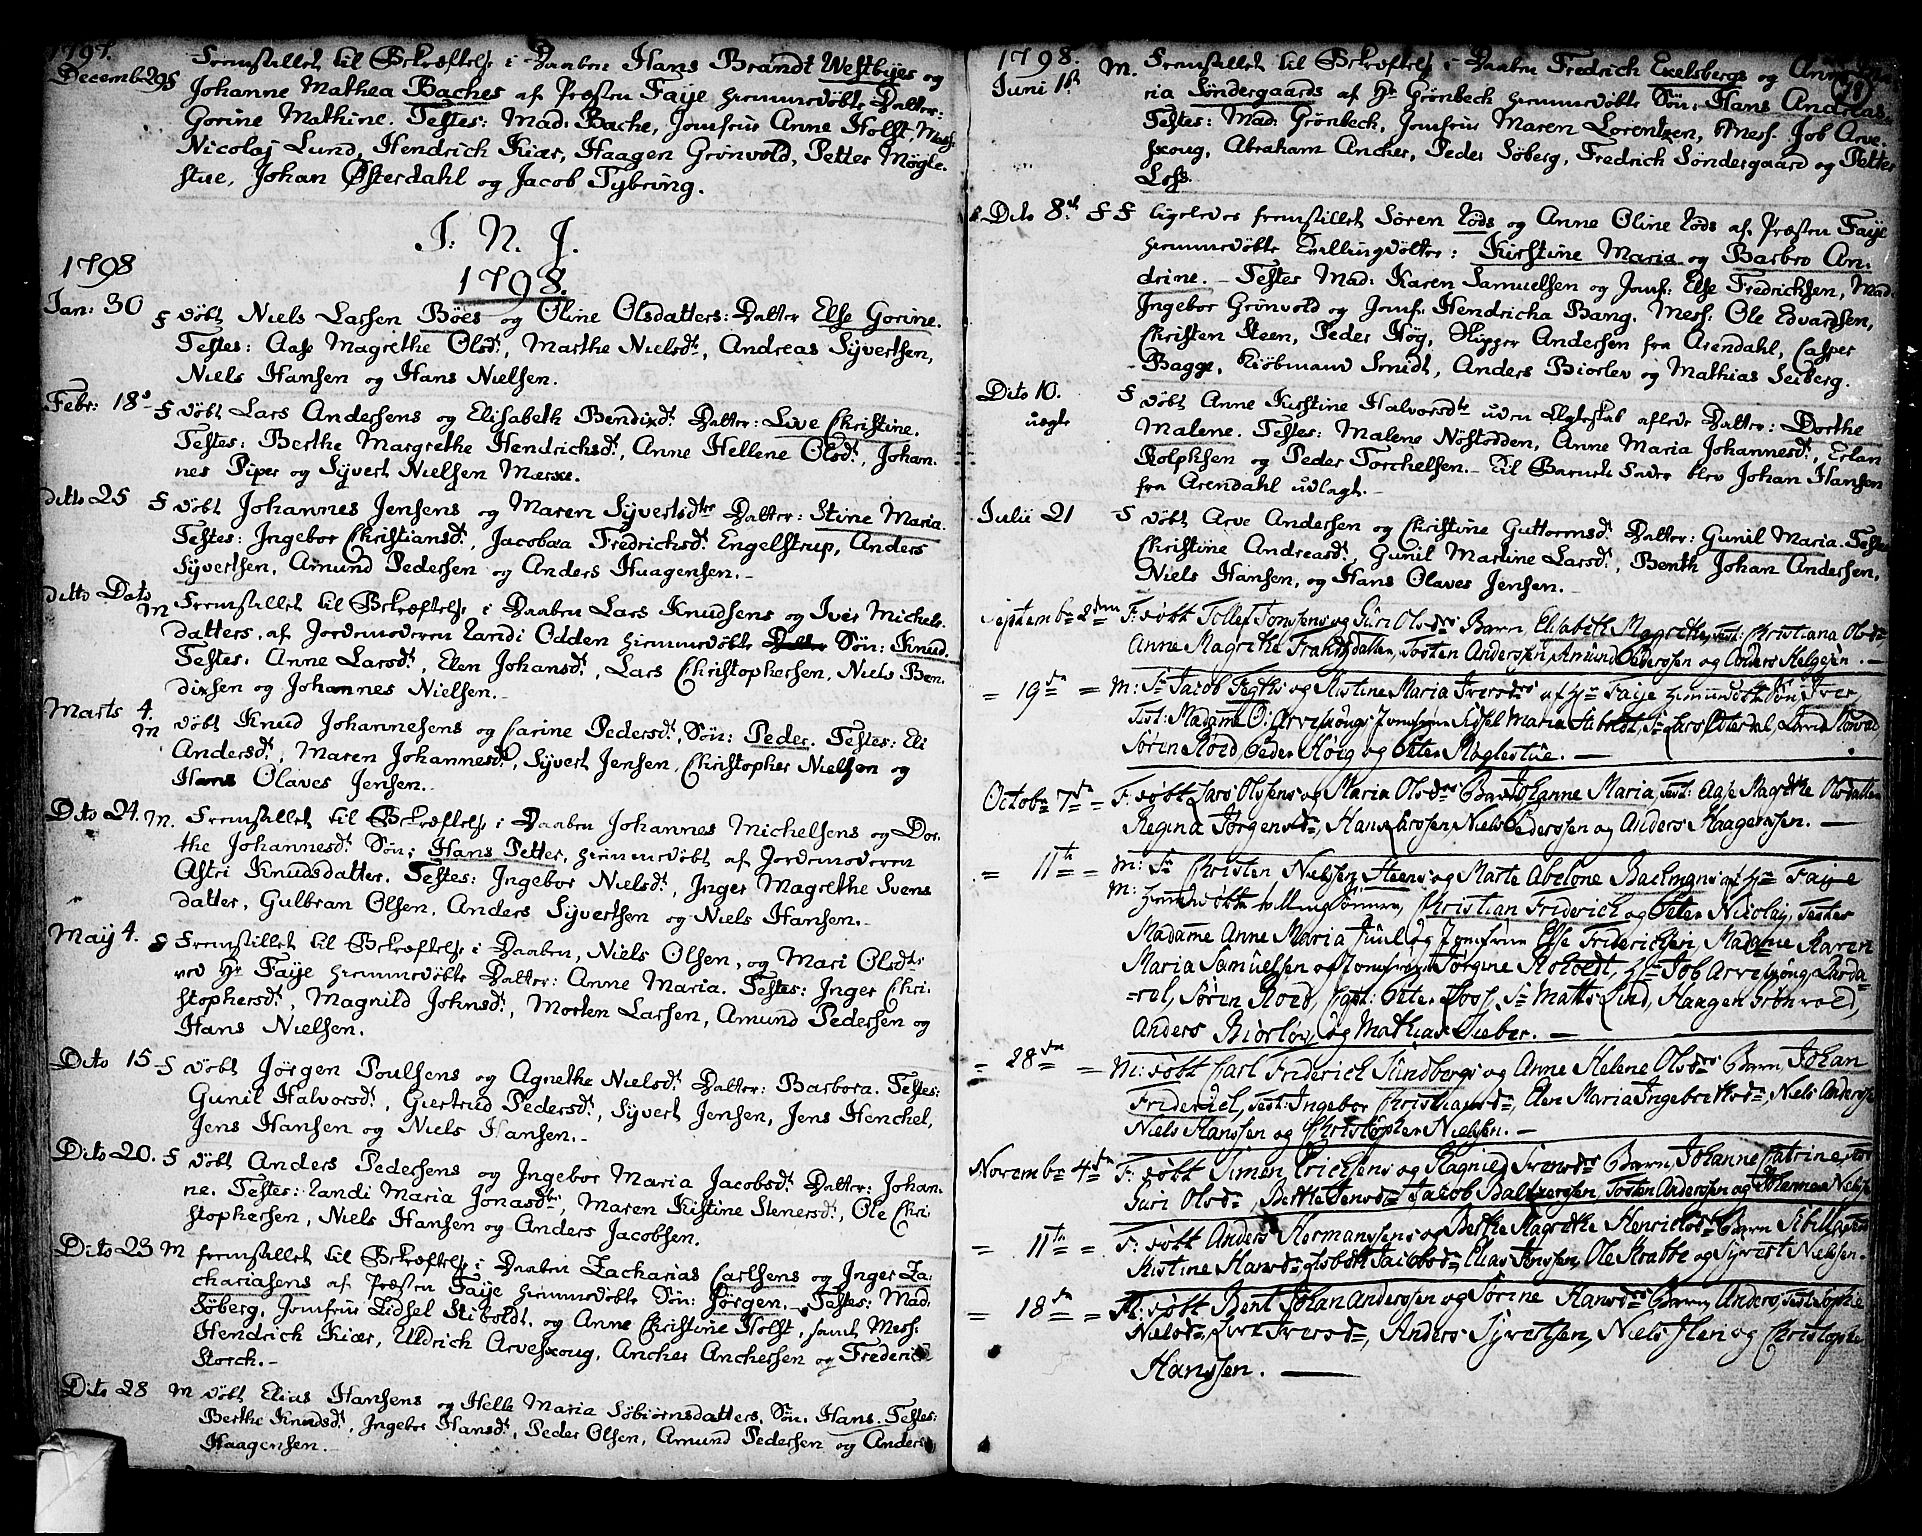 1797.
Decemb: 29
Fremstillet til Bekræftelse i Daaben Hans Brandt Westbyes og
Johanne Mathea Baches af Præsten Faÿe hiemmedöbte Datter:
Gorine Mathine. Testes: Mad: Bache, Jomfrue Anne Holst Mess:
Nicolaj Lund, Hendrich Kiær, Haagen Grönvold, Petter Mögle-
stue, Johan Østerdahl og Jacob Tybring.
I: N. J.
1798
1798.
Jan: 30 F döbt Niels Larsen Böes og Oline Olsdatters: Datter Else Gorine.
Testes: Aase Magrethe Olsdt., Marthe Nielsdt., Andreas Syvertsen,
Niels Hansen og Hans Nielsen.
Febr: 18 F döbt Lars Andersens og Elisabeth Bendixdt. Datter: Live Christine.
Testes: Berthe Margrethe Hendrichsdt., Anne Hellene Olsdt., Johan-
nes Piper og Syvert Nielsen Mærxe.
ditto 25 F döbt Johannes Jensens og Maren Syvertsdtrs Datter: Stine Maria.
Testes: Ingebor Christiansdt., Jacobæa Fredrichsdt. Engelstrup, Anders
Syvertsen, Amund Pedersen og Anders Huagensen.
ditto Dato M Fremstillet til Bekræftelse i Daaben Lars Knudsens og Iver Michels-
datters, af Jordemoderen Randi Odden hiemmedöbte Datter Sön: Knud.
Testes: Anne Larsdt., Elen Johansdt., Lars Christophersen, Niels Ben-
dixsen og Johannes Nielsen.
Marts 4. M döbt Knud Johannesens og Carine Pedersdt., Sön: Peder. Testes: Eli
Andersdt., Maren Johannesdt., Syvert Jensen, Christopher Nielsen og
Hans Olaves Jensen.
Dito 24. M. Fremstillet til Bekræftelse i Daaben Johannes Michelsens og Dor-
the Johannesdt. Sön: Hans Petter, hiemmedöbt af Jordemoderen
Astri Knudsdatter. Testes: Ingebor Nielsdt., Inger Magrethe Svens
datter, Gulbran Olsen, Anders Syvertsen og Niels Hansen.
Maÿ 4. F Fremstillet til Bekræftelse i Daaben, Niels Olsen, og Mari Olsdtrs
ved Hr Faÿe hiemmedöbte Datter: Anne Maria. Testes: Inger Chri-
stophersdt., Magnild Johnsdt., Morten Larsen, Amund Pedersen og
Hans Nielsen.
Dito 15 F döbt Jörgen Poulsens og Agnethe Nielsdt. Datter: Barbora. Testes:
Gunil Halvorsdt., Giertrud Pedersdt., Syvert Jensen, Jens Henchel,
Jens Hansen og Niels Hansen.
Dito 20. F döbt Anders Pedersens og Ingebor Maria Jacobsdt. Datter: Johan-
ne. Testes: Randi Maria Jonasdtr, Maren Kistine Stenersdt., Ole Chri-
stophersen, Niels Hansen og Anders Jacobsen.
Dito 23 M fremstillet til Bekræftelse i Daaben Zacharias Carlsens og Inger Za-
chariasens af Præsten Faÿe hiemmedöbte Sön: Jörgen. Testes: Mad:
Söberg, Jomfrue Zidsel Stiboldt, og Anne Christine Holst, samt Mess:
Hendrich Kiær, Uldrich Arvesxoug, Ancher Anchersen og Frederic
Storch.
Dito 28 M döbt Elias Hansens og Helle Maria Söbiörnsdatters, Sön, Hans. Testes:
Berthe Knudsdt., Ingebor Hansdt., Peder Olsen, Amund Pedersen og Anders
Haagensen.
1798.
Juni 1st M. Fremstillet til Bekræftelse i Daaben Fredrich Exelsbergs og Anne
ria Söndergaards af Hr Grönbech hiemmedöbte Sön: Hans Andreas.
Testes: Mad: Grönbech, Jomfrue Maren Lorentzen, Mess. Job Arve-
sxoug, Abraham Ancher, Peder Söberg, Fredrich Söndergaard og Petter
Loss.
Dito 8de F F ligeledes fremstillet Sören Röds og Anne Oline Röds af Præsten Faÿe
hiemmedöbte Tvillingdöttre: Kirstine Maria og Barbro An-
drine. Testes Mad: Karen Samuelsen og Jomf: Else Fredrichsen, Mad:
Ingebor Grönvold og Jomf. Hendricha Bang. Mess: Ole Edvardsen,
Christen Steen, Peder Hög, Skipper Andersen fra Arendahl, Casper
Bagge, Kiöbmand Smidt, Anders Biorlev og Mathias Seiberg.
Dito 10. F döbt Anne Kirstine Halvorsdtr uden Ægteskab aflede Datter: Dorthe
uægte Malene. Testes: Malene Nöstodden, Anne Maria Johannesdt., Erlan
Rolphsen og Peder Torchelsen. Til Barnets Fader blev Johan Hansen
fra Arendahl udlagt.
Julii 21 F döbt Arve Andersen og Christine Guttormsdt. Datter: Gunil Maria. Testes
Christine Andreasdt., Gunil Martine Larsdt., Benth Johan Andersen,
Niels Hansen, og Hans Olaves Jensen.
Septembr 2den F: döbt Tollef Jonsens og Guri Olsdrs Barn Elisabeth Magrethe, Test: Christiana Olsdr
Anne Magrethe Frandsdatter, Tosten Anderssen, Amund Pederssen og Anders Helgesen.
= 19de = M: Sr Jacob Fegths og Kistine Maria Iversdrs af Hr Faÿe hiemmedöbt Sön Iver,
Test: Madame O: Arveskougs Jomfrue Sidsel Maria Stiboldt,
Sören Röed, Peder Höig og Petter Moglestüe.
Octobr 7de = F: döbt Lars Olssens og Maria Olsdrs Barn Johanne Maria, Test: Aase Magrethe Olsdatter
Regina Jörgensdr, Hans Larssen, Niels Pederssen og Anders Haagenssen.
= 11te = M: Sr Christen Nielssen Steens og Marte Abelone Bachmans af Hr Faÿe
M: hiemmedöbte tvillingsönner, Christian Friderich og Peter Nicolaÿ, Testes
Madame Anne Maria Juul og Jomfrue Else Friderichsen, Madame Karen
Maria Samuelsen og Jomfrue Jörgine Roholdt, Hr Job Arveskoug Larda-
-rel, Sören Röed, Capt: Petter Loss, Sr Matts Lund, Haagen Grönvold,
Anders Biorlöv, og Mathias Sieber.
= 28de = M: döbt Carl Friderich Sundbergs og Anne Helene Olsdrs Barn, Johan
Friderich, Test: Ingebor Christiansdr, Elen Maria Ingebrethsdr, Niels Anderss
Niels Hanssen og Christopher Nielssen.
Novembr 4de F: döbt Simen Erichsens og Ragnied Svensdrs Barn, Johanne Catrine,
Guri Olsdr, Berthe Jensdr, Jacob Baltzerssen, Tosten Anderssen og Johannes Nielsse
= 11te = F: döbt Anders Hormanssens og Berthe Magrethe Henrichsdrs Barn Sibille
Kistine Hansdr, Lisbeth Jacobsdr, Elias Jenssen, Ole Krabbe og Syvert Nielssen.
= 18de = M: döbt Bent Johan Anderssen og Sörine Hansdrs Barn Anders, Test: Sophie
Nielsdr, Live Iversdr, Anders Syvertsen, Niels Iler og Christopher
Hanssen.